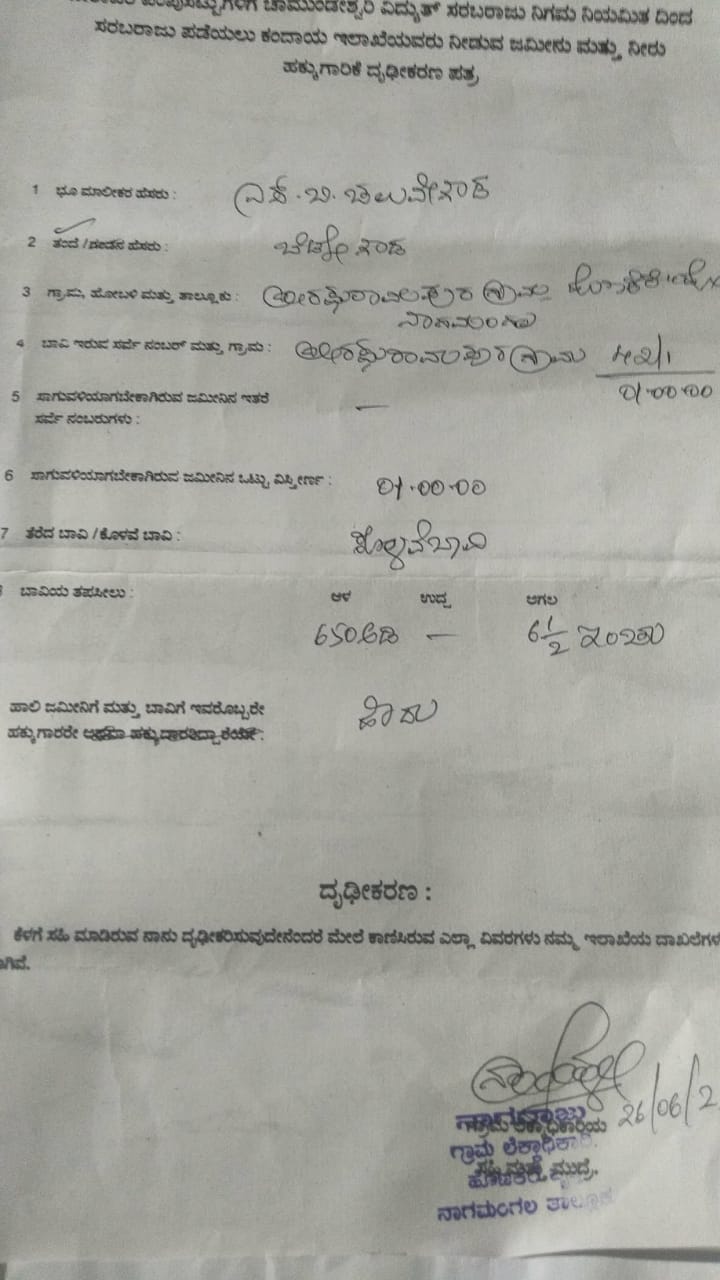 ಪಂಪುಸೆಟ್ಟುಗಳಿಗೆ ಚಾಮುಂಡೇಶ್ವರಿ ವಿದ್ಯುತ್ ಸರಬರಾಜು ನಿಗಮ ನಿಯಮಿತ ದಿಂದ
ಸರಬರಾಜು ಪಡೆಯಲು ಕಂದಾಯ ಇಲಾಖೆಯವರು ನೀಡುವ ಜಮೀನು ಮತ್ತು ನೀರು
ಹಕ್ಕುಗಾರಿಕೆ ದೃಢೀಕರಣ ಪತ್ರ
1 ಭೂ ಮಾಲೀಕರ ಹೆಸರು : ಎನ್. ಬಿ. ಚಲುವೇಗೌಡ
2 ತಂದೆ / ಗಂಡನ ಹೆಸರು :
3 ಗ್ರಾಮ, ಹೋಬಳಿ ಮತ್ತು ತಾಲ್ಲೂಕು : ಗ್ರಾಮ
ನಾಗಮಂಗಲ
4 ಬಾವಿ ಇರುವ ಸರ್ವೆ ನಂಬರ್ ಮತ್ತು ಗ್ರಾಮ : ಗ್ರಾಮ
0/-00-00
5 ಸಾಗುವಳಿಯಾಗಬೇಕಾಗಿರುವ ಜಮೀನಿನ ಇತರೆ —
ಸರ್ವೆ ನಂಬರುಗಳು :
6 ಸಾಗುವಳಿಯಾಗಬೇಕಾಗಿರುವ ಜಮೀನಿನ ಒಟ್ಟು ವಿಸ್ತೀರ್ಣ : 01-00-00
7 ತೆರೆದ ಬಾವಿ / ಕೊಳವೆ ಬಾವಿ : ಕೊಳವೆಬಾವಿ
ಬಾವಿಯ ತಪಸೀಲು : ಆಳ ಉದ್ದ ಅಗಲ
650 ಅಡಿ — 6 1/2 ಇಂಚು
ಹಾಲಿ ಜಮೀನಿಗೆ ಮತ್ತು ಬಾವಿಗೆ ಇವರೊಬ್ಬರೇ ಹೌದು
ಹಕ್ಕುಗಾರರೇ ಅಥವಾ
ದೃಢೀಕರಣ :
ಕೆಳಗೆ ಸಹಿ ಮಾಡಿರುವ ನಾನು ದೃಢೀಕರಿಸುವುದೇನೆಂದರೆ ಮೇಲೆ ಕಾಣಿಸಿರುವ ಎಲ್ಲಾ ವಿವರಗಳು ನಮ್ಮ ಇಲಾಖೆಯ ದಾಖಲೆಗಳ
ಾಗಿವೆ.
26/06/2
ನಾಗರಾಜು
ಗ್ರಾಮ ಲೆಕ್ಕಾಧಿಕಾರಿಯ
ಗ್ರಾಮ ಲೆಕ್ಕಾಧಿಕಾರಿ
ಸಹಿ ಮತ್ತು ಮುದ್ರೆ.
ನಾಗಮಂಗಲ ತಾಲ್ಲೂಕು